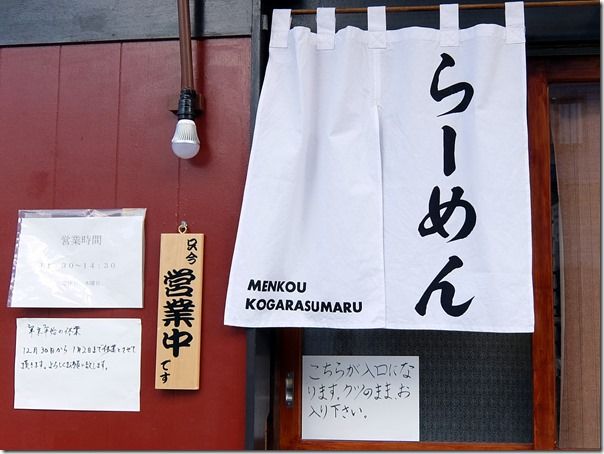 らーめん
MENKOU
KOGARASUMARU
只今
営業中
です
営業時間
:30~14:30
年末年始の休業
12月30日から1月2日まで休業とさせて
頂きます。よろしくお願い致します。
こちらが入口にな
ります。クツのまま、お
入り下さい。